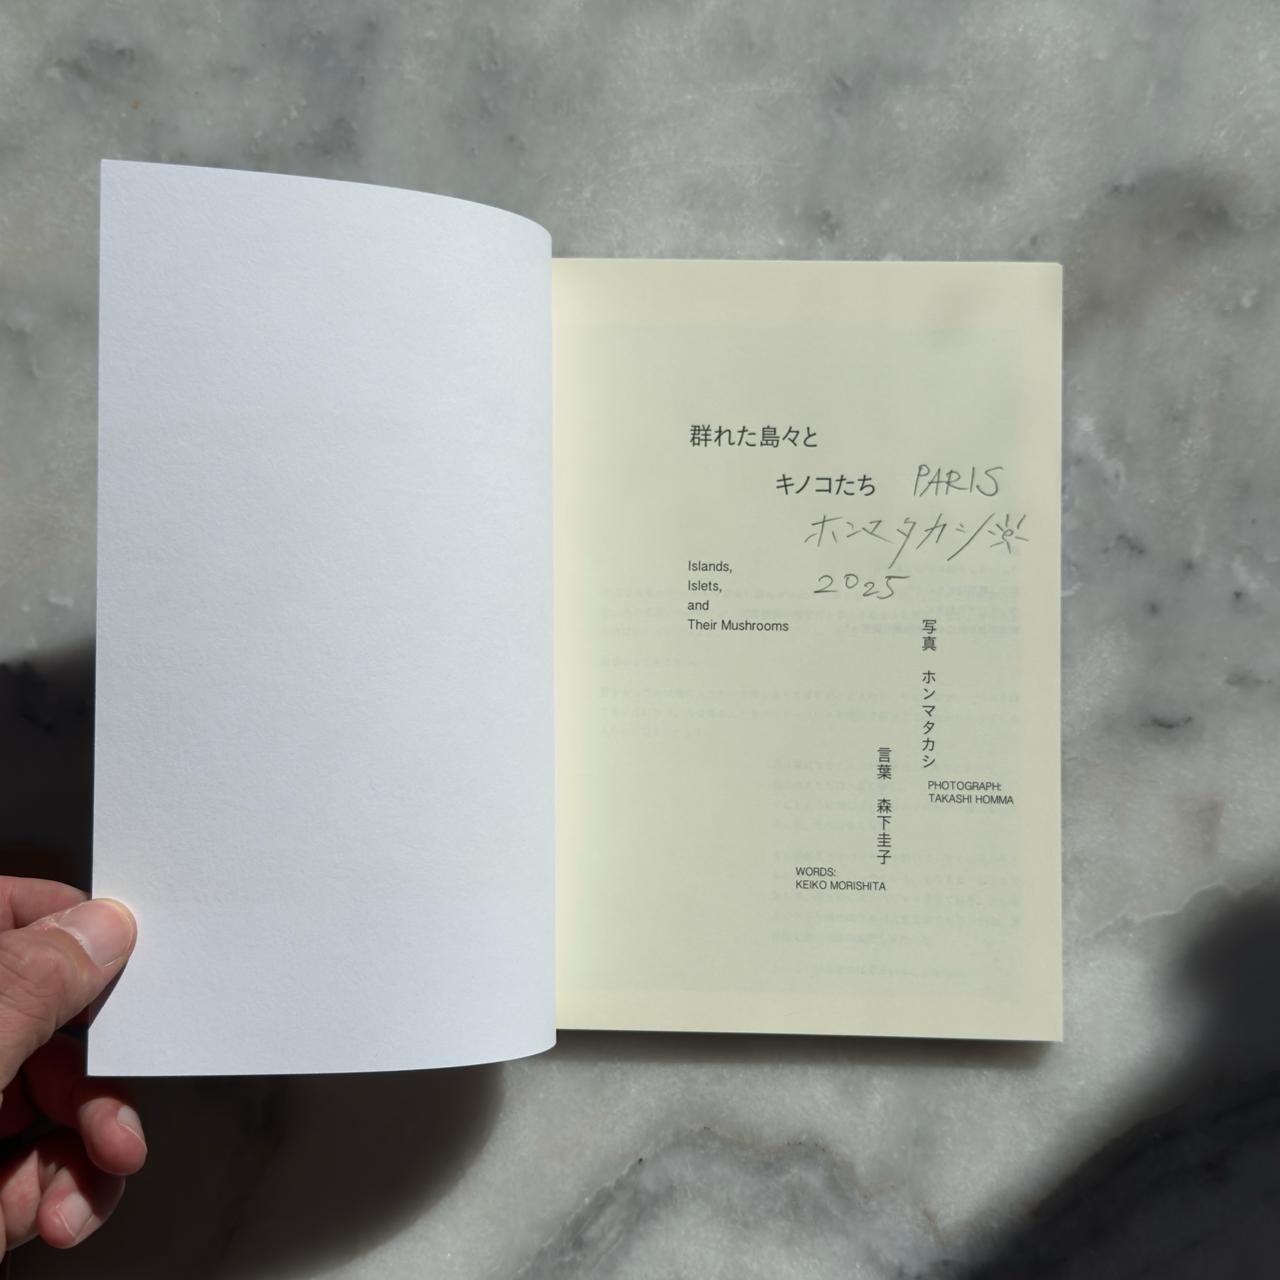 群れた島々と
キノコたち
PARIS
ホンマタカシ
2025
Islands,
Islets,
and
Their Mushrooms
写真 ホンマタカシ
PHOTOGRAPH:
TAKASHI HOMMA
言葉 森下圭子
WORDS:
KEIKO MORISHITA